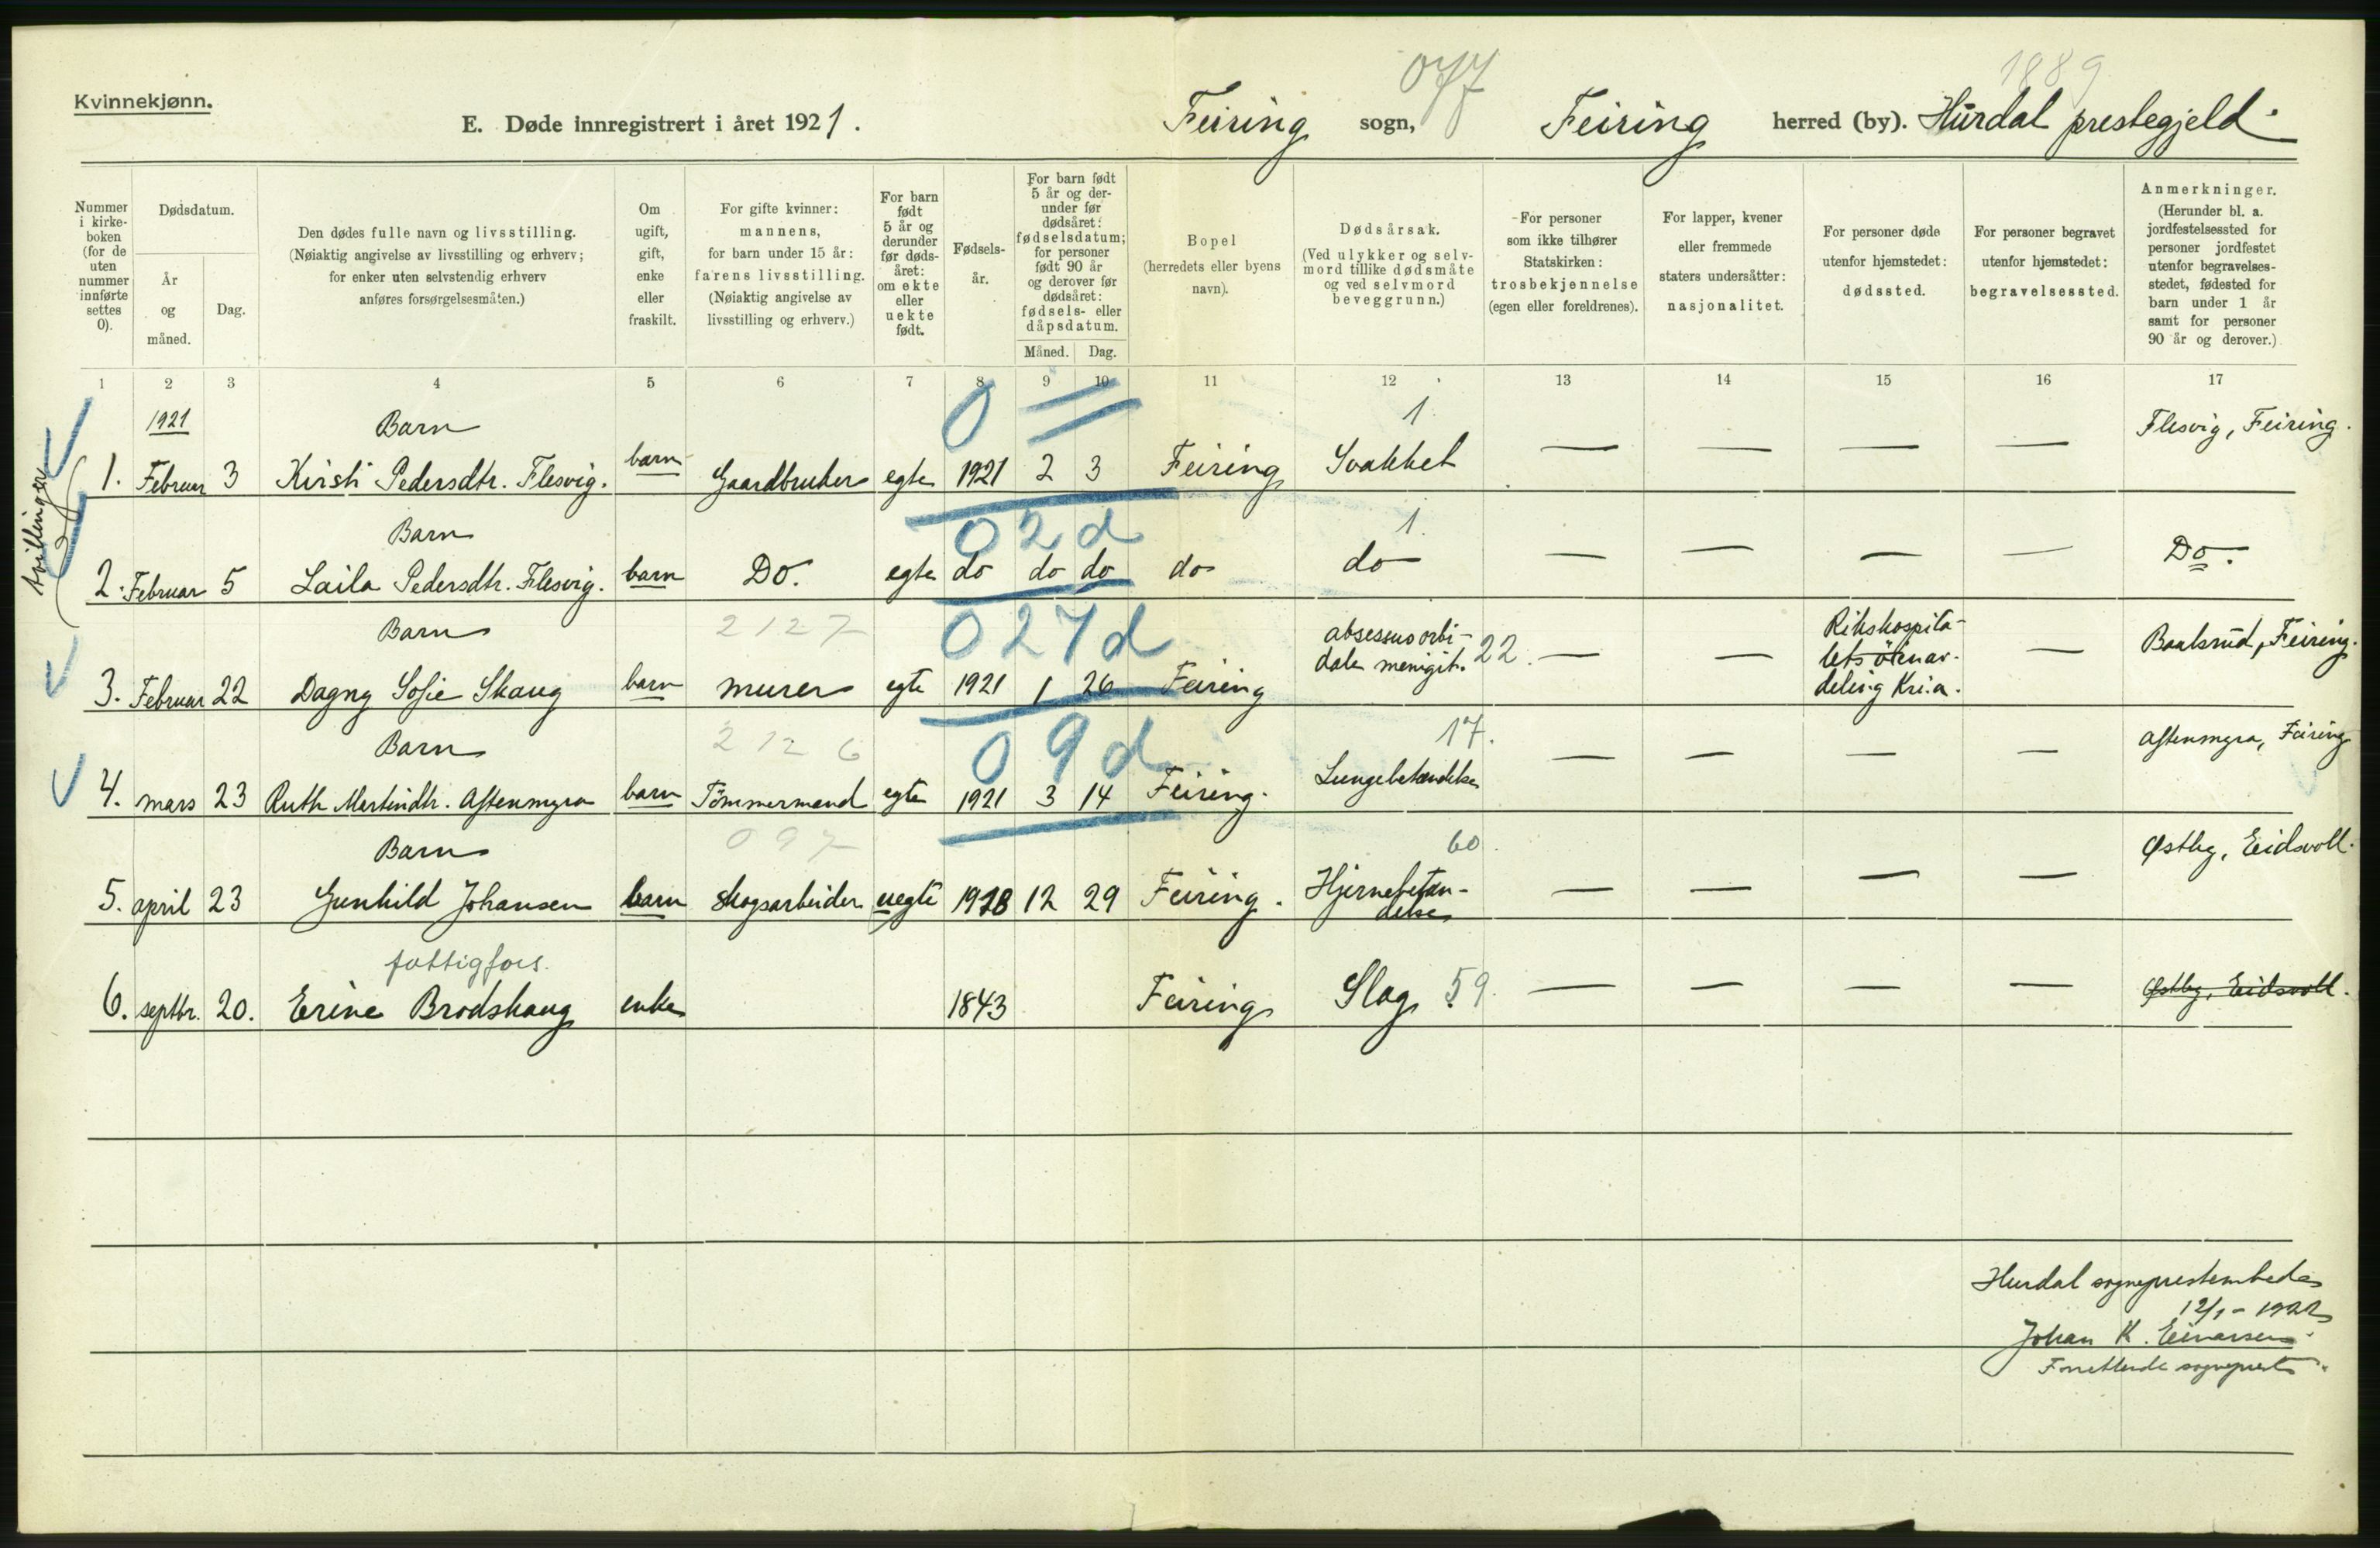 Kvinnekjønn.
E. Døde innregistrert i året 1921. Feiring sogn, Feiring herred (by). Hurdal prestegjeld.
077
1889
Nummer i kirkeboken (for de uten nummer innførte settes 0).
Dødsdatum.
År og måned.
Dag.
Den dødes fulle navn og livsstilling.
(Nøiaktig angivelse av livsstilling og erhverv;
for enker uten selvstendig erhverv
anføres forsørgelsesmåten.)
Om ugift, gift, enke eller fraskilt.
For gifte kvinner:
mannens,
for barn under 15 år:
farens livsstilling.
(Nøiaktig angivelse av
livsstilling og erhverv.)
For barn født 5 år og derunder før dødsåret: om ekte eller uekte født.
Fødselsår.
For barn født 5 år og derunder før dødsåret: fødselsdatum; for personer født 90 år og derover før dødsåret: fødsels- eller dåpsdatum.
Måned. Dag.
Bopel
(herredets eller byens
navn).
Dødsårsak.
(Ved ulykker og selvmord tillike dødsmåte
og ved selvmord
beveggrunn.)
For personer
som ikke tilhører
Statskirken:
trosbekjennelse
(egen eller foreldrenes).
For lapper, kvener
eller fremmede
staters undersåtter:
nasjonalitet.
For personer døde
utenfor hjemstedet:
dødssted.
For personer begravet
utenfor hjemstedet:
begravelsessted.
Anmerkninger.
(Herunder bl. a.
jordfestelsessted for
personer jordfestet
utenfor begravelsesstedet, fødested for
barn under 1 år
samt for personer
90 år og derover.)
1 2 3 4 5 6 7 8 9 10 11 12 13 14 15 16 17
tvillinger
1921 Barn 0 1 Flesvig, Feiring.
1. Februar 3 Kirsti Pedersdtr. Flesvig. barn Gaardbruker egte 1921 2 3 Feiring Svakhet — — — —
Barn 0 2 d 1
2. Februar 5 Laila Pedersdtr. Flesvig. barn Do. egte do do do do do — — — — Do.
Barn 2127 0 27 d absessus orbi- 22 Rikshospita-
3. Februar 22 Dagny Sofie Skaug barn murer egte 1921 1 26 Feiring dale menigit. — — lets ørenav- — Baalsrud, Feiring.
deling Kr.i.a.
Barn 2126 0 9 d 17. Astenmyra, Feiring
4. mars 23 Ruth Martindtr. Astenmyra barn Tømmermand egte 1921 3 14 Feiring. Lungebetændelse — — — —
Barn 097 60. Østby, Eidsvoll.
5. april 23 Gunhild Johansen barn skogsarbeider uegte 1918 12 29 Feiring. Hjernebetæn- — — — —
delse
fattigfors.
6. septbr. 20. Erine Brodshaug enke 1843 Feiring Slag 59. — — — — Østby, Eidsvoll.
Hurdal sogneprestembede
12/1 - 1922
Johan K. Einarsen.
Forrettende sogneprest.